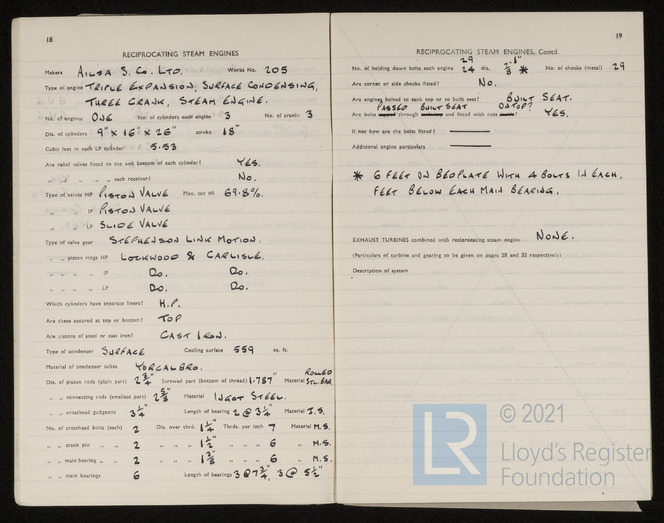 18
RECIPROCATING STEAM ENGINES
Makers AILSA S. Co. LTD. Works No. 205
Type of engine TRIPLE EXPANSION, SURFACE CONDENSING,
THREE CRANK, STEAM ENGINE.
No. of engines ONE No. of cylinders each engine 3 No. of cranks 3
Dia. of cylinders 9" X 16" X 26" stroke 18"
Cubic feet in each LP cylinder 5.53
Are relief valves fitted to top and bottom of each cylinder? YES.
" " " each receiver? NO.
Type of valves HP PISTON VALVE Max. cut off 69.8%.
" " IP PISTON VALVE
" " LP SLIDE VALVE
Type of valve gear STEPHENSON LINK MOTION.
" " piston rings HP LOCKWOOD & CARLISLE.
" " " " IP DO. DO.
" " " " LP DO. DO.
Which cylinders have separate liners? H.P.
Are these secured at top or bottom? TOP
Are pistons of steel or cast iron? CAST IRON.
Type of condenser SURFACE Cooling surface 559 sq. ft.
Material of condenser tubes YORCALBRO.
Dia. of piston rods (plain part) 2 3/4" Screwed part (bottom of thread) 1.787" Material ROLLED STL. BAR
" " connecting rods (smallest part) 2 5/8" Material INGOT STEEL.
" " crosshead gudgeons 3 1/4" Length of bearing 2 @ 3 1/4" Material I.S.
No. of crosshead bolts (each) 2 Dia. over thrd. 1 1/4" Thrds. per inch 7 Material M.S.
" " crank pin " " 2 " " " 1 1/2" " " " 6 " M.S.
" " main bearing " " 2 " " " 1 3/8" " " " 6 " M.S.
" " main bearings 6 Length of bearings 3 @ 7 3/4", 3 @ 5 1/2"
19
RECIPROCATING STEAM ENGINES, Contd.
29
No. of holding down bolts each engine 24 dia. 7/8" 1" * No. of chocks (metal) 29
Are corner or side chocks fitted? NO.
Are engines bolted to tank top or to built seat? BUILT SEAT.
PASSED BUILT SEAT ON TOP?
Are bolts through and fitted with nuts YES.
If not how are the bolts fitted?
Additional engine particulars
* 6 FEET ON BEDPLATE WITH 4 BOLTS IN EACH.
FEET BELOW EACH MAIN BEARING.
EXHAUST TURBINES combined with reciprocating steam engine NONE.
(Particulars of turbine and gearing to be given on pages 28 and 32 respectively)
Description of system
LR © 2021
Lloyd's Register
Foundation